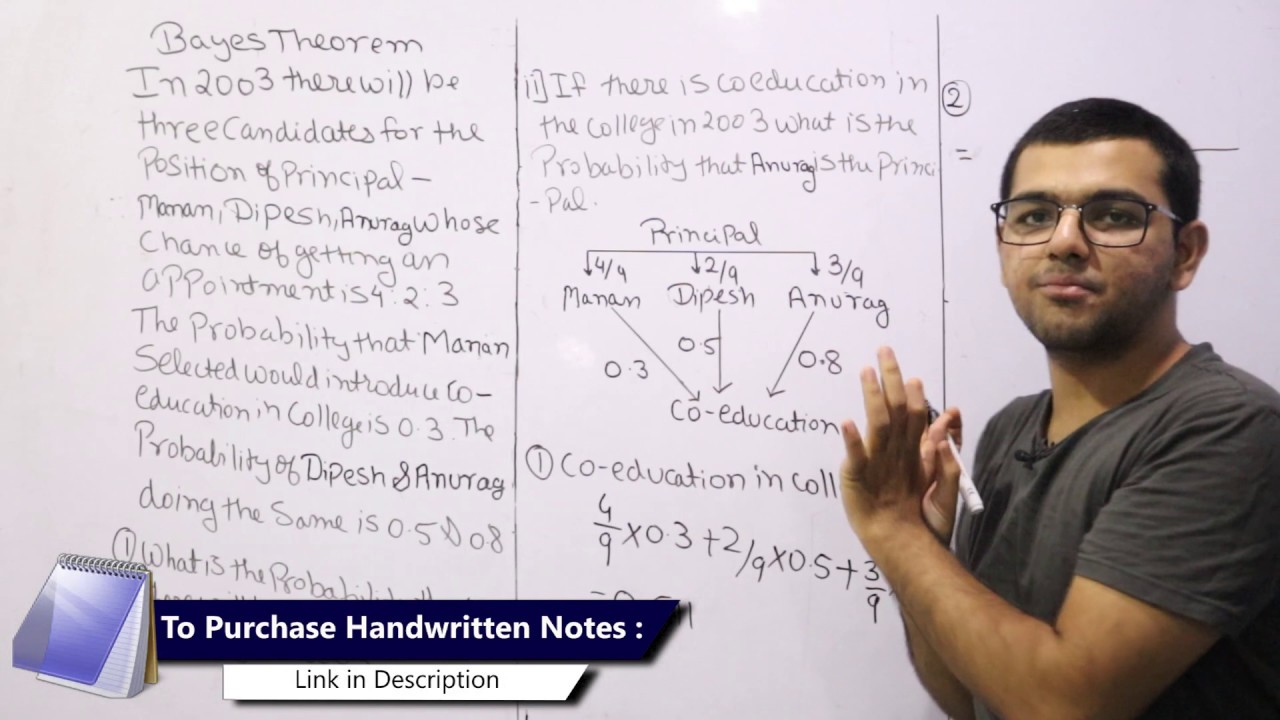 Bayes Theorem
In 2003 there will be
three Candidates for the
Position of Principal -
Manan, Dipesh, Anurag whose
Chance of getting an
appointment is 4:2:3
The Probability that Manan
Selected would introduce Co-
education in College is 0.3. The
Probability of Dipesh & Anurag
doing the Same is 0.5 & 0.8
① What is the Probability
ii] If there is coeducation in
the college in 2003 what is the
Probability that Anurag is the Princi
-Pal.
Principal
4/9 2/9 3/9
Manan Dipesh Anurag
0.3 0.5 0.8
Co-education
① Co-education in coll
4/9 × 0.3 + 2/9 × 0.5 + 3/9
②
=
To Purchase Handwritten Notes :
Link in Description